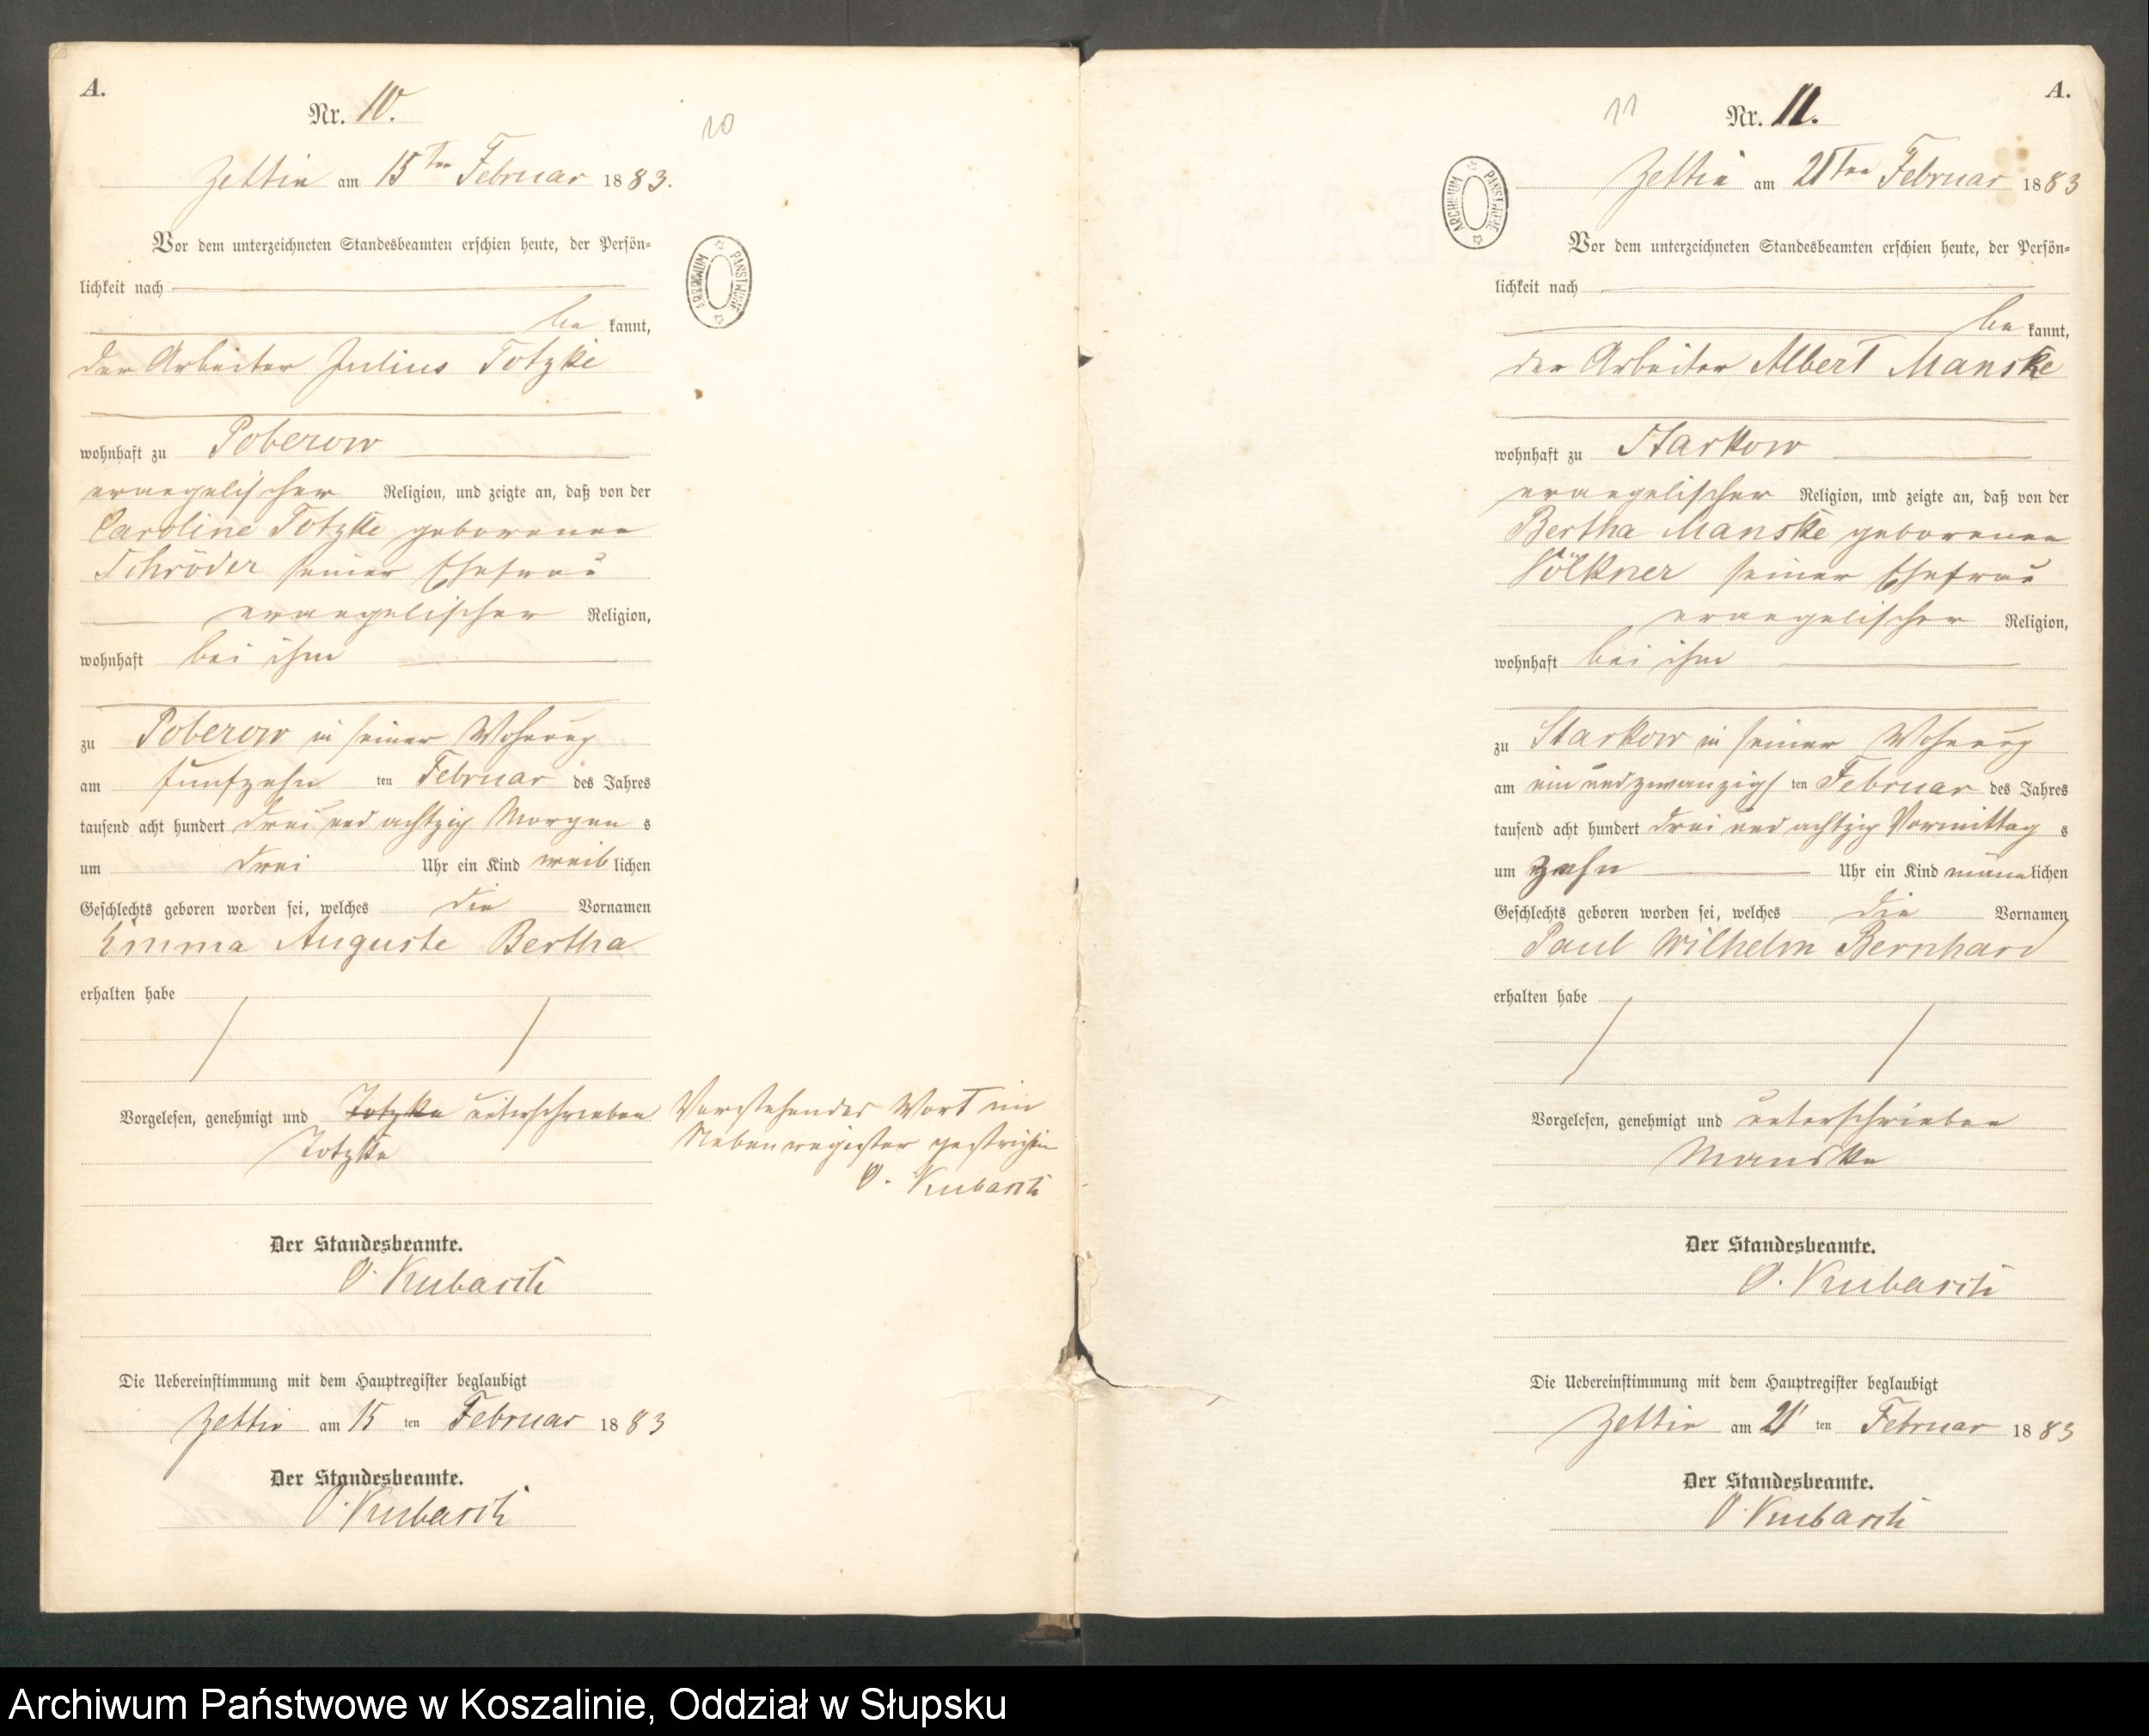 A.
Nr. 10.
10
Zettin am 15ten Februar 1883.
Vor dem unterzeichneten Standesbeamten erschien heute, der Persön=
lichkeit nach
be kannt,
der Arbeiter Julius Totzke
wohnhaft zu Poberow
evangelischer Religion, und zeigte an, daß von der
Caroline Totzke geborenen
Schröder seiner Ehefrau
evangelischer Religion,
wohnhaft bei ihm
zu Poberow in seiner Wohnung
am fünfzehn ten Februar des Jahres
tausend acht hundert drei und achtzig Morgen s
um drei Uhr ein Kind weiblichen
Geschlechts geboren worden sei, welches die Vornamen
Emma Auguste Bertha
erhalten habe
Vorgelesen, genehmigt und Totzke unterschrieben
Totzke
Vorstehendes Wort im
Nebenregister gestrichen
O. Kubasch
Der Standesbeamte.
O. Kubasch
Die Uebereinstimmung mit dem Hauptregister beglaubigt
Zettin am 15 ten Februar 1883
Der Standesbeamte.
O. Kubasch
ARCHIWUM PAŃSTWOWE
A.
11
Nr. 11.
ARCHIWUM PAŃSTWOWE
Zettin am 21ten Februar 1883
Vor dem unterzeichneten Standesbeamten erschien heute, der Persön=
lichkeit nach
be kannt,
der Arbeiter Albert Manske
wohnhaft zu Starkow
evangelischer Religion, und zeigte an, daß von der
Bertha Manske geborenen
Völkner seiner Ehefrau
evangelischer Religion,
wohnhaft bei ihm
zu Starkow in seiner Wohnung
am ein und zwanzigs ten Februar des Jahres
tausend acht hundert drei und achtzig Vormittag s
um zehn Uhr ein Kind männlichen
Geschlechts geboren worden sei, welches die Vornamen
Paul Wilhelm Bernhard
erhalten habe
Vorgelesen, genehmigt und unterschrieben
Manske
Der Standesbeamte.
O. Kubasch
Die Uebereinstimmung mit dem Hauptregister beglaubigt
Zettin am 21 ten Februar 1883
Der Standesbeamte.
O. Kubasch
Archiwum Państwowe w Koszalinie, Oddział w Słupsku